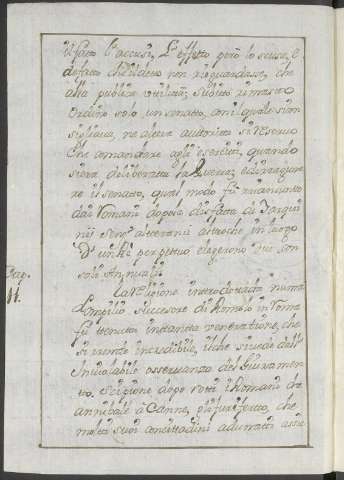 il fatto l'accusi, l'effetto però lo scusa, e
de fatto ch'il detto non riguardasse, che
alla publica utilità, subito rimasto
ordinò solo un senatto, con il quale si con
sigliava, ne altra autorità si riservò
che comandare agl' eserciti, quando
s'era deliberatta la guera, e di ragunare
il senatto, qual modo fù
dai Romani dopo la disfatta di Tarqui
nii senz' alteranii altro che in luogo
d' un Rè perpettuo elegerono due con
soli Annuali.
Cap.
11.
La religione introdotta da Numa
Pompilio sucesore di Romolo in Roma
fù tenuta in tanta veneratione, che
si rende incredibile, il che si vede dall'
inviolabile osservanza del Giuramen
to. Scipione dopo rotti i Romani da
Annibale a Canne, che
molti suoi concittadini adunatti